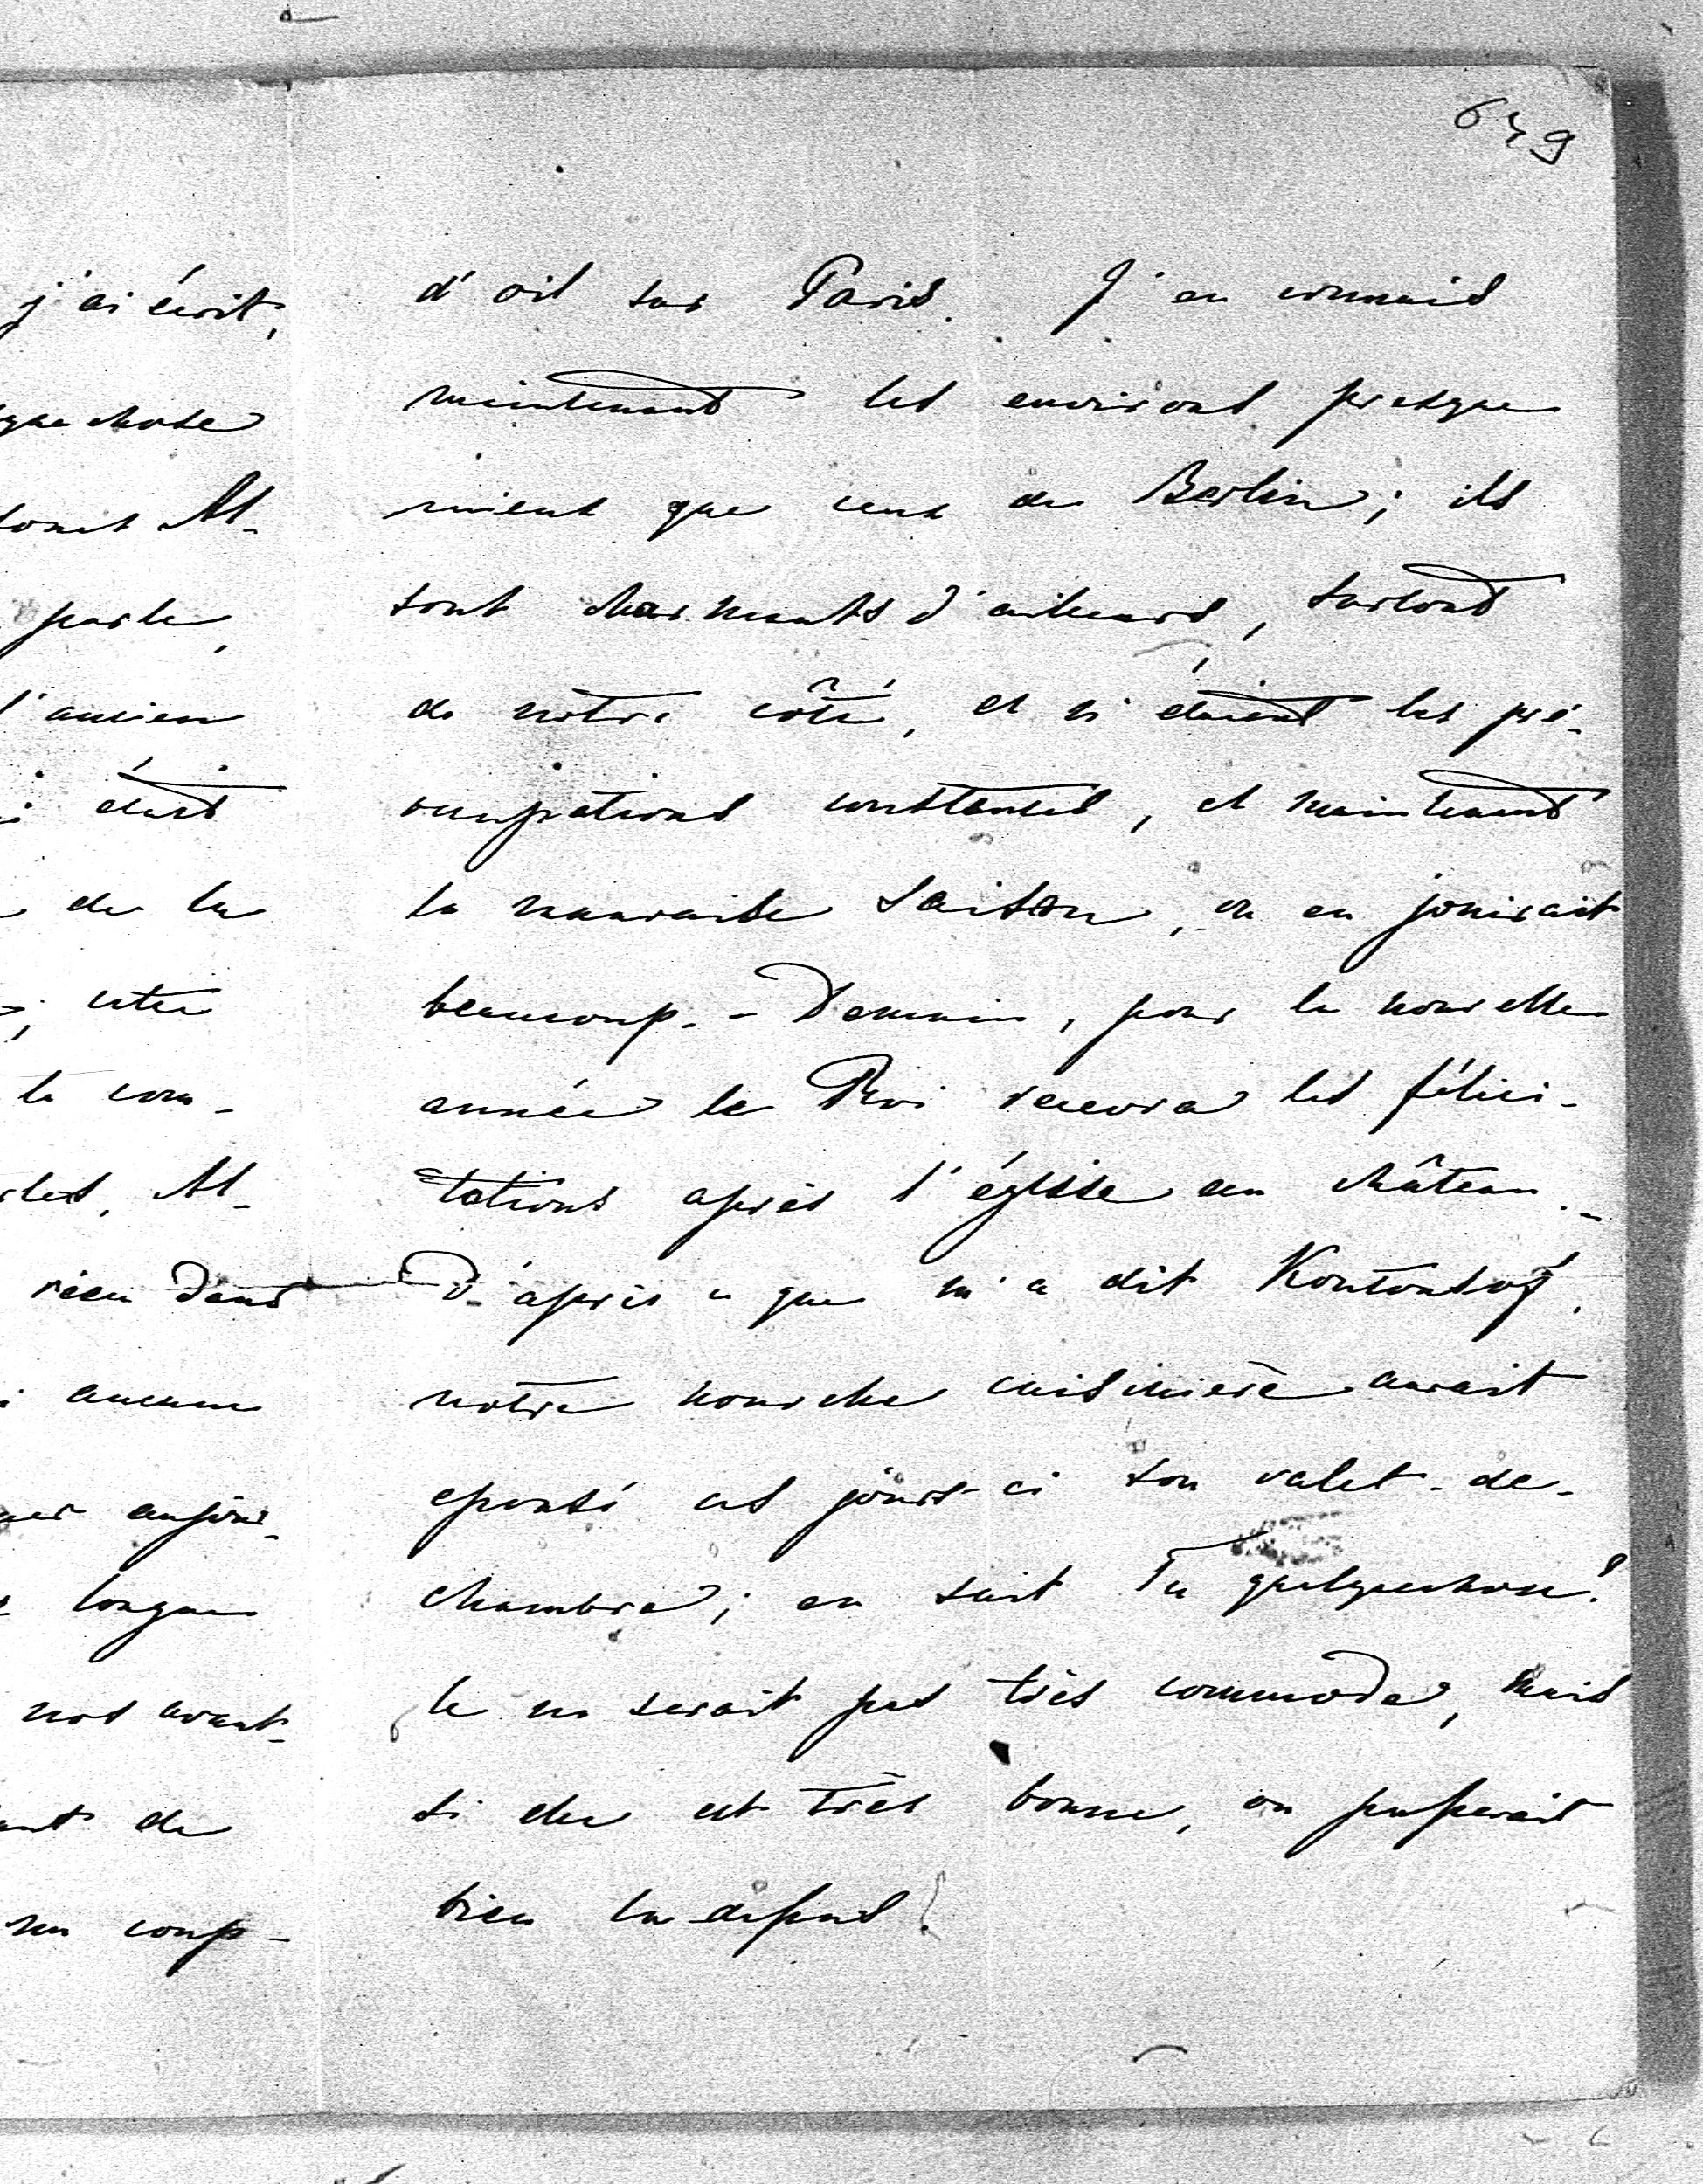 639
j'ai écrit,
que chose
sont M-
parle,
l'ancien
était
de la
; cette
le com-
M-
rien dans
aucune
aujour-
longue
nos avant-
de
un coup-
d'oeil sur Paris. J'en connais
maintenant les environs presque
mieux que ceux de Berlin; ils
sont charmants d'ailleurs, surtout
de nôtre côté, et si étaient les pré-
occupations constantes, et maintenant
la mauvaise saison, on en jouirait
beaucoup. - Demain, pour la nouvelle
année le Roi recevra les félici-
tations après l'église au château. -
D'après ce que m'a dit Koutousof,
notre nouvelle cuisinière aurait
epousé ces jours-ci son valet-de-
chambre; en sait Tu quelquechose?
Ce ne serait pas très commode, mais
si elle est très bonne, on passerait
bien la dessus!